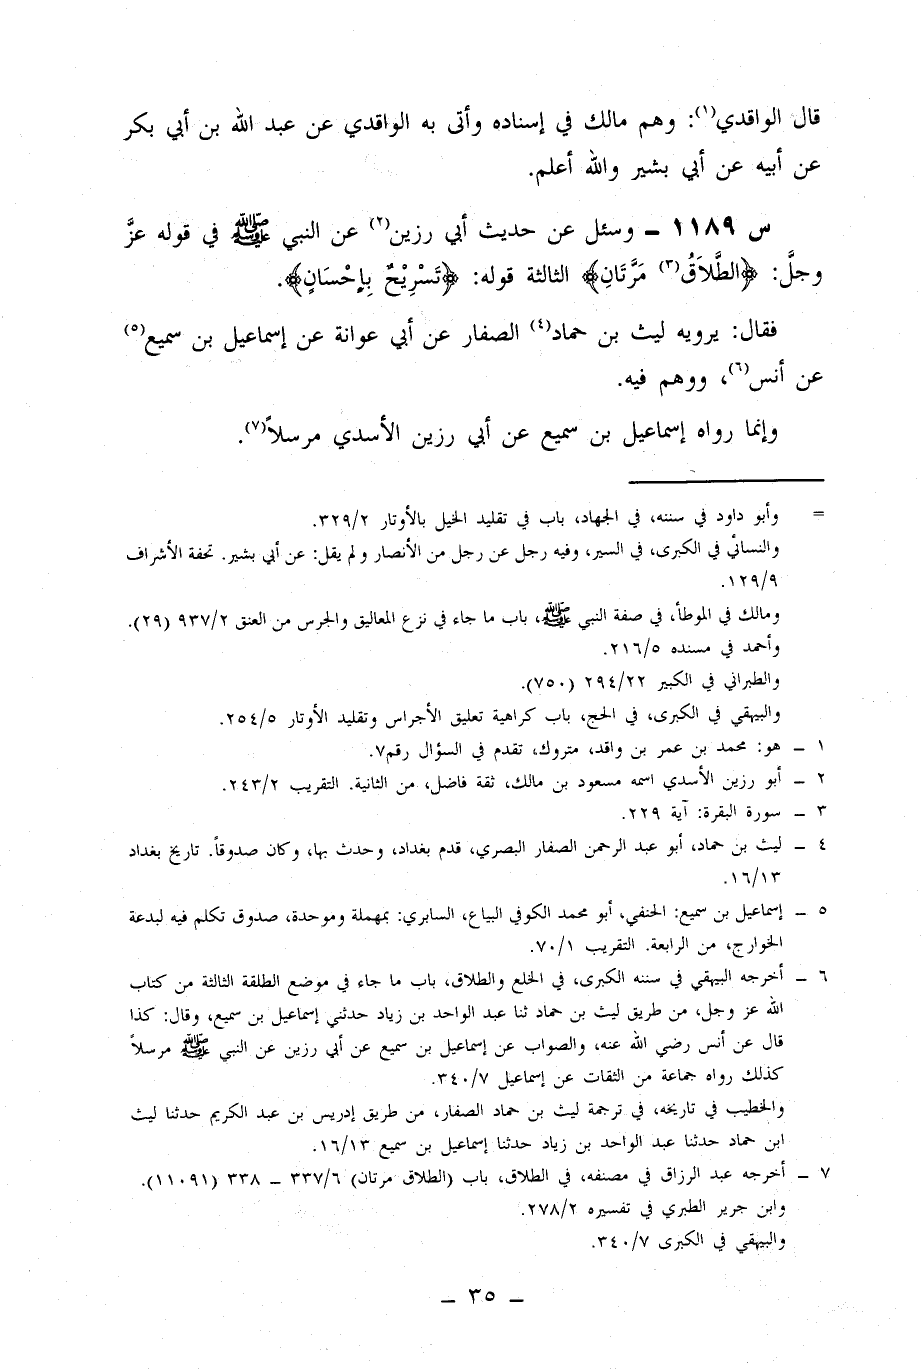 قال الواقدي(١): وهم مالك في إسناده وأتى به الواقدي عن عبد الله بن أبي بكر
عن أبيه عن أبي بشير والله أعلم.
س ١١٨٩ ـ وسئل عن حديث أبي رزين(٢) عن النبي ﷺ في قوله عزَّ
وجلَّ: ﴿الطَّلاَقُ(٣) مَرَّتَانِ﴾ الثالثة قوله: ﴿تَسْرِيْحٌ بِإحْسَانٍ﴾.
فقال: يرويه ليث بن حماد(٤) الصفار عن أبي عوانة عن إسماعيل بن سميع(٥)
عن أنس(٦)، ووهم فيه.
وإنما رواه إسماعيل بن سميع عن أبي رزين الأسدي مرسلاً(٧).
= وأبو داود في سننه، في الجهاد، باب في تقليد الخيل بالأوتار ٣٢٩/٢.
والنسائي في الكبرى، في السير، وفيه رجل عن رجل من الأنصار ولم يقل: عن أبي بشير. تحفة الأشراف
١٢٩/٩.
ومالك في الموطأ، في صفة النبي ﷺ، باب ما جاء في نزع المعاليق والجرس من العنق ٩٣٧/٢ (٢٩).
وأحمد في مسنده ٢١٦/٥.
والطبراني في الكبير ٢٩٤/٢٢ (٧٥٠).
والبيهقي في الكبرى، في الحج، باب كراهية تعليق الأجراس وتقليد الأوتار ٢٥٤/٥.
١ ـ هو: محمد بن عمر بن واقد، متروك، تقدم في السؤال رقم٧.
٢ ـ أبو رزين الأسدي اسمه مسعود بن مالك، ثقة فاضل، من الثانية. التقريب ٢٤٣/٢.
٣ ـ سورة البقرة: آية ٢٢٩.
٤ ـ ليث بن حماد، أبو عبد الرحمن الصفار البصري، قدم بغداد، وحدث بها، وكان صدوقاً. تاريخ بغداد
١٦/١٣.
٥ ـ إسماعيل بن سميع: الحنفي، أبو محمد الكوفي البياع، السابري: بمهملة وموحدة، صدوق تكلم فيه لبدعة
الخوارج، من الرابعة. التقريب ٧٠/١.
٦ ـ أخرجه البيهقي في سننه الكبرى، في الخلع والطلاق، باب ما جاء في موضع الطلقة الثالثة من كتاب
الله عز وجل، من طريق ليث بن حماد ثنا عبد الواحد بن زياد حدثني إسماعيل بن سميع، وقال: كذا
قال عن أنس رضي الله عنه، والصواب عن إسماعيل بن سميع عن أبي رزين عن النبي ﷺ مرسلاً
كذلك رواه جماعة من الثقات عن إسماعيل ٣٤٠/٧.
والخطيب في تاريخه، في ترجمة ليث بن حماد الصفار، من طريق إدريس بن عبد الكريم حدثنا ليث
ابن حماد حدثنا عبد الواحد بن زياد حدثنا إسماعيل بن سميع ١٦/١٣.
٧ ـ أخرجه عبد الرزاق في مصنفه، في الطلاق، باب (الطلاق مرتان) ٣٣٧/٦ ـ ٣٣٨ (١١٠٩١).
وابن جرير الطبري في تفسيره ٢٧٨/٢.
والبيهقي في الكبرى ٣٤٠/٧.
ـ ٣٥ ـ